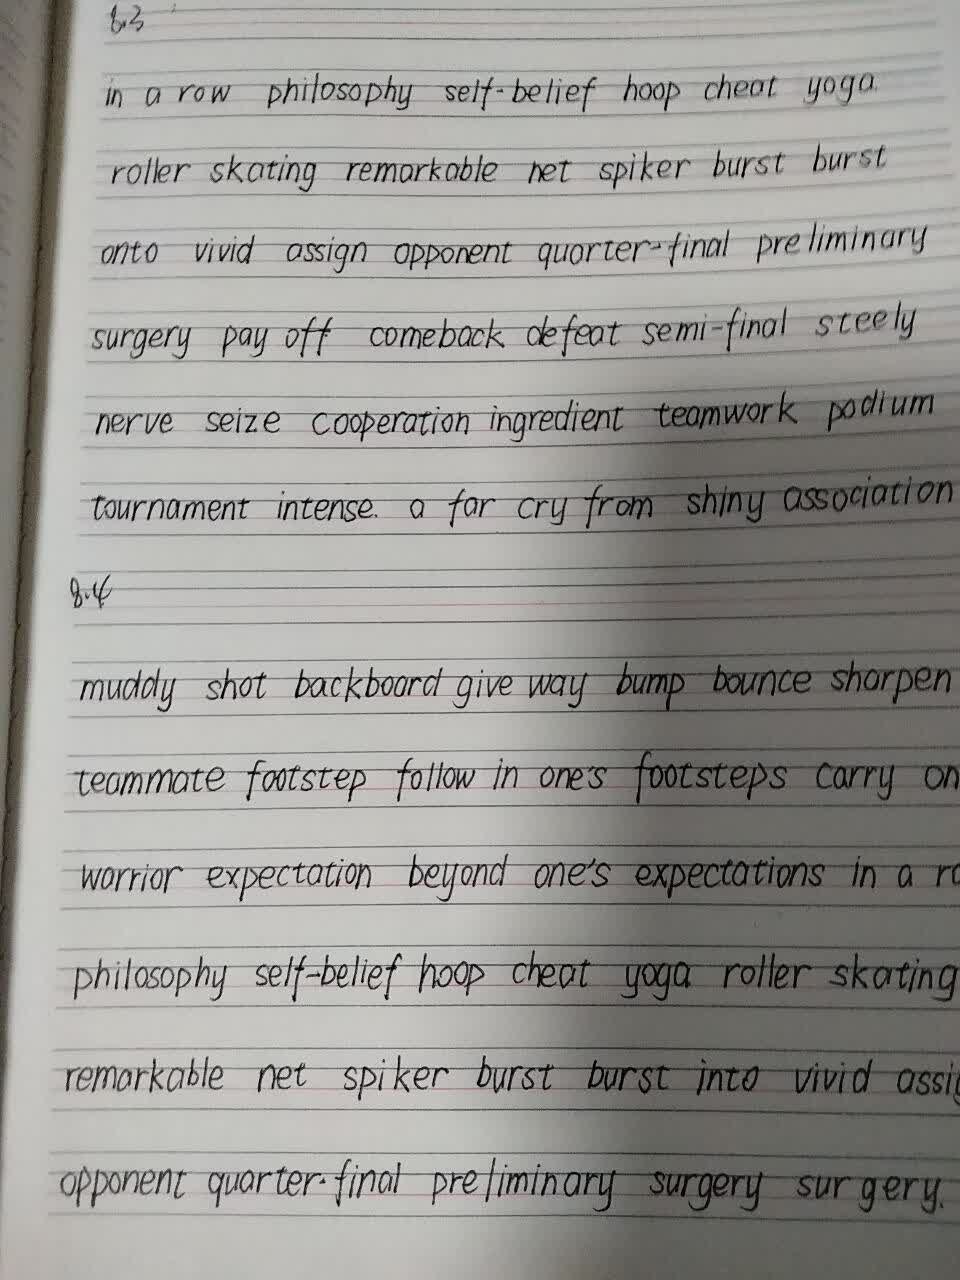 8.3
in a row philosophy self-belief hoop cheat yoga
roller skating remarkable net spiker burst burst
onto vivid assign opponent quarter-final preliminary
surgery pay off comeback defeat semi-final steely
nerve seize cooperation ingredient teamwork podium
tournament intense. a far cry from shiny association
8.4
muddy shot backboard give way bump bounce sharpen
teammate footstep follow in one's footsteps carry on
warrior expectation beyond one's expectations in a
philosophy self-belief hoop cheat yoga roller skating
remarkable net spiker burst burst into vivid
opponent quarter-final preliminary surgery surgery.